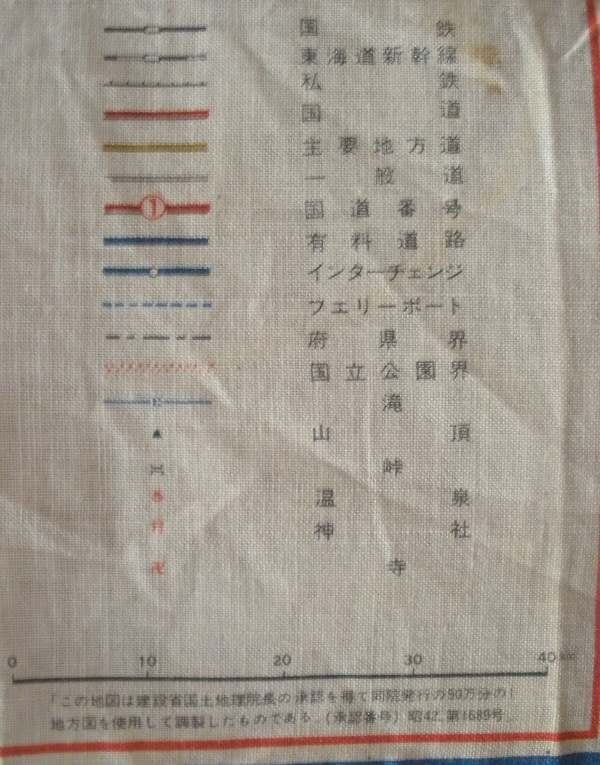 国鉄
東海道新幹線
私鉄
国道
主要地方道
一般道
1 国道番号
有料道路
インターチェンジ
フェリーボート
府県界
国立公園界
滝
山頂
峠
温泉
神社
卍 寺
0 10 20 30 40 km
「この地図は建設省国土地理院長の承認を得て同院発行の50万分の1
地方図を使用して調製したものである。(承認番号)昭42,第1689号」